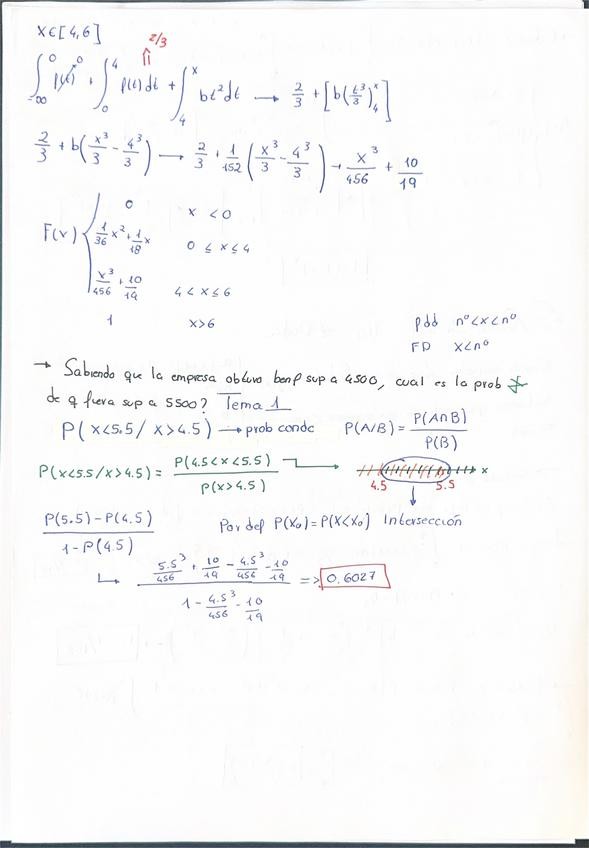 X∈[4,6]
2/3
⇑
∫_{-∞}^{0} p(t) →0 + ∫_{0}^{4} p(t)dt + ∫_{4}^{x} bt²dt → 2/3 + [b(t³/3)_{4}^{x}]
2/3 + b(x³/3 - 4³/3) → 2/3 + 1/152 (x³/3 - 4³/3) → x³/456 + 10/19
F(x) {
0 x < 0
1/36 x² + 1/18 x 0 ≤ x ≤ 4
x³/456 + 10/19 4 < x ≤ 6
1 x>6
pdd nº<x<nº
FD x<nº
→ Sabiendo que la empresa obtuvo benf sup a 4500, cual es la prob
de q fuera sup a 5500? Tema 1
P(x<5.5/x>4.5) → prob condc P(A/B) = P(A∩B)/P(B)
P(x<5.5/x>4.5) = P(4.5<x<5.5)/P(x>4.5) → x
4.5 5.5
P(5.5)-P(4.5)/1-P(4.5) Por def P(X₀)=P(X<X₀) Intersección
5.5³/456 + 10/19 - 4.5³/456 - 10/19 / 1 - 4.5³/456 - 10/19 => 0.6027